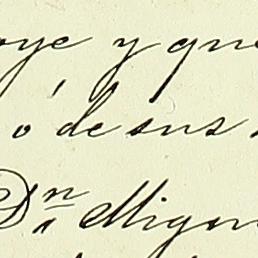 oye y que
ó de sus
Dn Migu